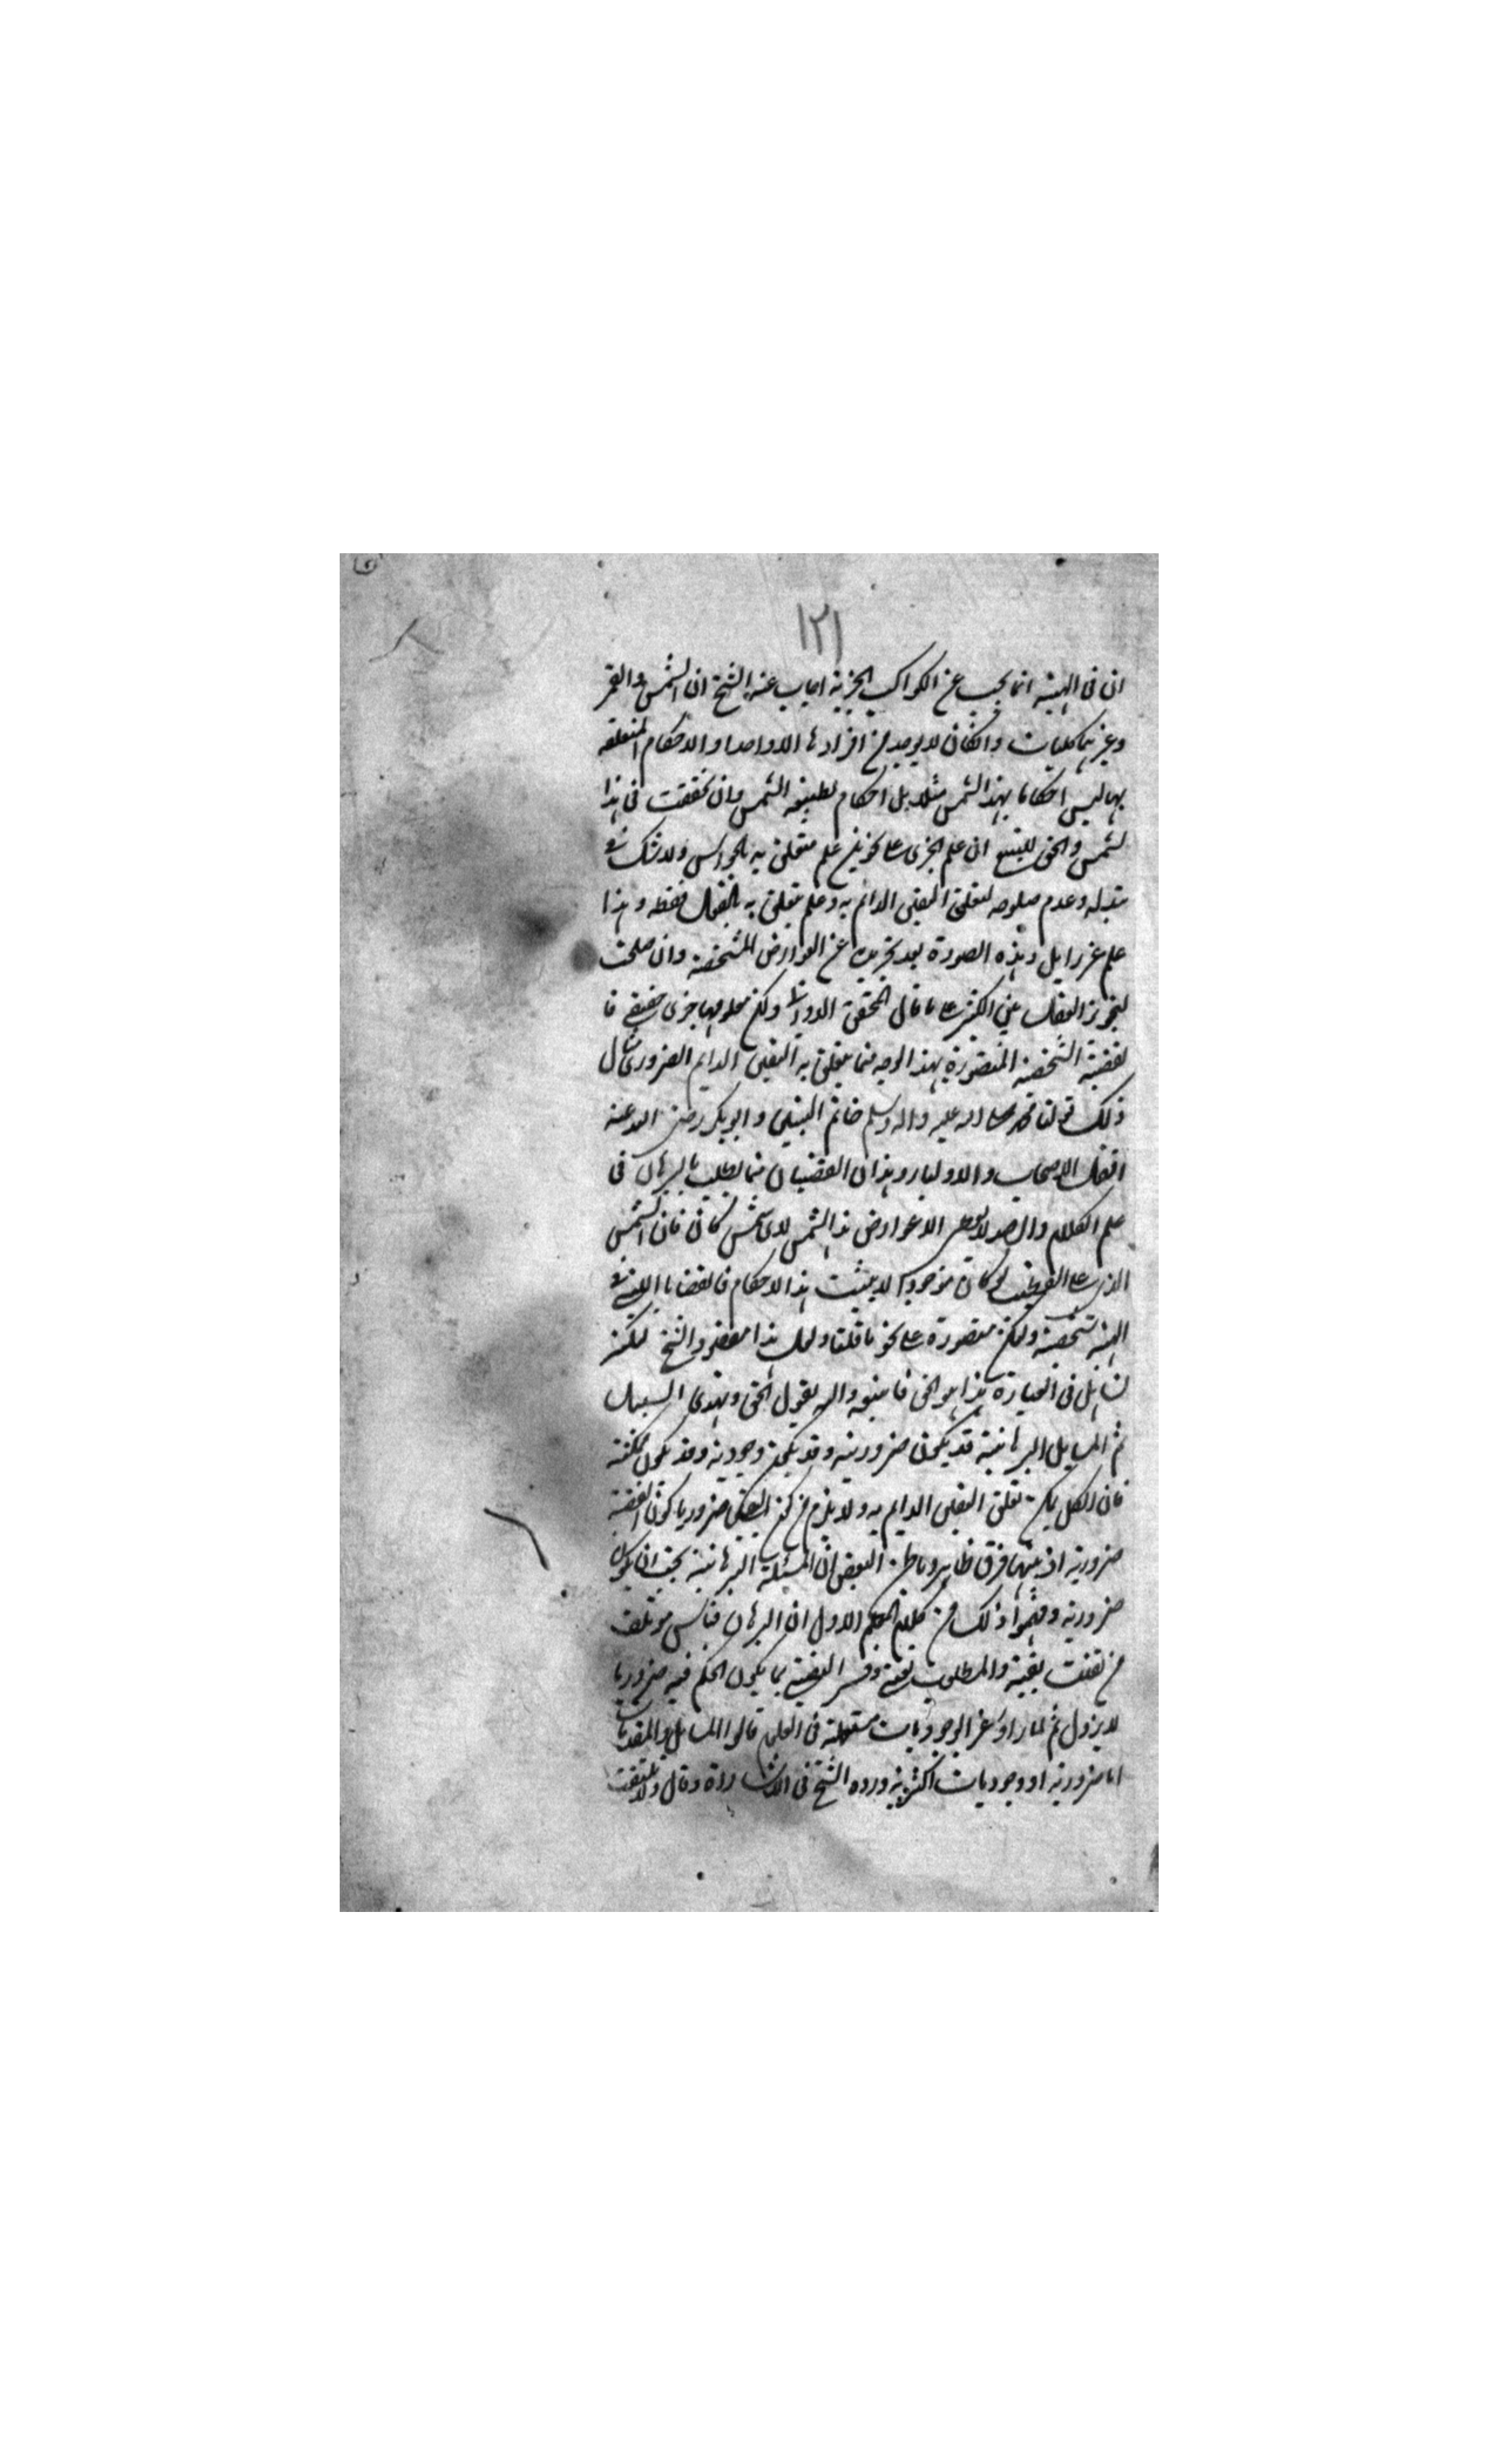 ١٢١
ان فى الهيئة انما يبحث عن الكواكب الجزئية اجاب عنه الشيخ ان الشمس والقمر
وغيرهما كليات وان كان لا يوجد من افرادها الا واحدا والاحكام المتعلقة
بها ليس احكاما بهذا الشمس مثلا بل احكام لطبيعة الشمس وان تحققت فى هذا
لشمس والحق ان علم الجزئى على نحوين علم متعلق به بالحواس ولا شك فى
تبدله وعدم صلوحه لتعلق اليقين الدائم به وعلم يتعلق به بالعقل فقط وهذا
علم غير زايل وهذه الصورة بعد تجريده عن العوارض المشخصة وان صلحت
لتجويز العقل على ما قال المحقق الدوانى ولكن معلومها جزئى حقيقى فا
لقضية الشخصية المتصورة بهذا الوجه مما يتعلق به اليقين الدايم الضرورى مثال
ذلك قولنا محمد صلى الله عليه واله وسلم خاتم النبيين وابو بكر رضى الله عنه
افضل الاصحاب والاولياء وهذان القضيتان مما يطلب بالبرهان فى
علم الكلام الا عوارض هذا الشمس لا اى شمس كان فان الشمس
لو كان موجودا لا يثبت هذا الاحكام فالقضايا فى
الهيئة شخصية ولكن متصورة على نحو ما قلنا ولعل هذا مقصود الشيخ لكنه
تساهل فى العبارة هذا هو الحق فاتبعه والله يقول الحق ويهدى السبيل
ثم المسايل البرهانية قد يكون ضرورية وقد يكون وجودية وقد يكون ممكنة
فان الكل يمكن تعلق اليقين الدايم به ولا يلزم من كون اليقين ضروريا كون القضية
ضرورية اذ بينهما فرق ظاهر وما ظن البعض ان المسئلة البرهانية يجب ان يكون
ضرورية وفهموا ذلك من كلام المعلم الاول ان البرهان قياس مؤتلف
من يقينية والمطلوب يقينى وفسر اليقينية بما يكون الحكم فيه ضروريا
لا يزول ثم لما راوا عن الوجوديات مستعملة فى العلوم قالوا المسايل والمقدمات
اما ضرورية او وجوديات اكثرية ورده الشيخ فى الاشارة وقال ولا تلتفت